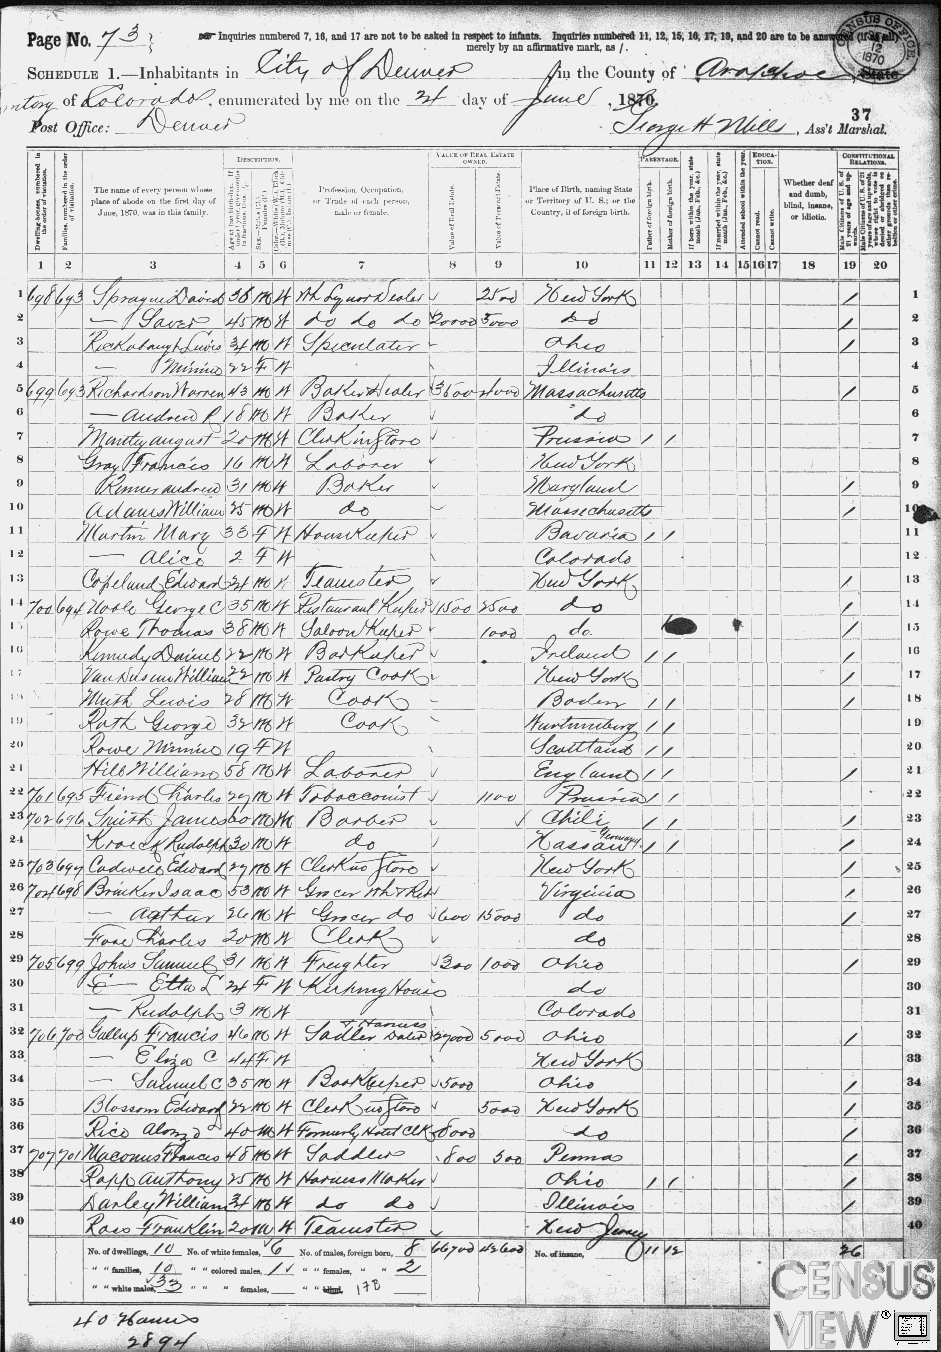 Page No. 73
Inquiries numbered 7, 16, and 17 are not to be asked in respect to infants. Inquiries numbered 11, 12, 15, 16, 17, 19, and 20 are to be answered (if at all)
merely by an affirmative mark, as /.
CENSUS OFFICE
12
1870
SCHEDULE 1.—Inhabitants in City of Denver, in the County of Arapahoe, State
of Colorado, enumerated by me on the 24 day of June, 1870.
37
Post Office: Denver George H Wells, Ass't Marshal.
DESCRIPTION. VALUE OF REAL ESTATE OWNED. PARENTAGE. EDUCATION. CONSTITUTIONAL RELATIONS.
Dwelling-houses, numbered in the order of visitation.
Families, numbered in the order of visitation.
The name of every person whose place of abode on the first day of June, 1870, was in this family.
Profession, Occupation, or Trade of each person, male or female.
Value of Real Estate.
Value of Personal Estate.
Place of Birth, naming State or Territory of U. S.; or the Country, if of foreign birth.
Father of foreign birth.
Mother of foreign birth.
Attended school within the year.
Cannot read.
Cannot write.
Whether deaf and dumb, blind, insane, or idiotic.
1 2 3 4 5 6 7 8 9 10 11 12 13 14 15 16 17 18 19 20
1 698 693 Sprague David 38 M W Wh Liquor Dealer 2500 New York / 1
2 — 45 M W do do do 20000 5000 do / 2
3 Rickabaugh Lewis 34 M W Speculater Ohio / 3
4 — Minnie 22 F W Illinois 4
5 699 693 Richardson Warren 43 M W Baker & Dealer 3500 4000 Massachusetts / 5
6 — Andrew P 18 M W Baker do 6
7 august 20 M W Clerk in Store Prussia / / 7
8 Gray Francis 16 M W Laborer New York 8
9 andrew 31 M W Baker Maryland / 9
10 Adams William 25 M W do Massachusetts / 10
11 Martin Mary 33 F W House Keeper Bavaria / / 11
12 — Alice 2 F W Colorado 12
13 Copeland Edward 24 M W Teamster New York / 13
14 700 694 George C 35 M W Restaurant Keeper 11500 2500 do / 14
15 Rowe Thomas 38 M W Saloon Keeper 1000 do / 15
16 Kennedy Daniel 22 M W Bar Keeper Ireland / / / 16
17 Van Dusen William 22 M W Pastry Cook New York / 17
18 Muth Lewis 28 M W Cook Baden / / / 18
19 Roth George 32 M W Cook Wurtemburg / / 19
20 Rowe Minnie 19 F W Scottland / / 20
21 Hill William 58 M W Laborer England / / / 21
22 701 695 Fiend Charles 29 M W Tobacconist 1100 Prussia / / / 22
23 702 696 Smith James 60 M M Barber Chili / / / 23
24 Rudolph 30 M W do Nassau Germany / / / 24
25 703 697 Cadwell Edward 27 M W Clerk in Store New York / 25
26 704 698 Brinker Isaac 53 M W Grocer Wh & Ret Virginia / 26
27 — Arthur 26 M W Grocer do 1600 15000 do / 27
28 Charles 20 M W Clerk do 28
29 705 699 Johns Samuel 31 M W Freighter 300 1000 Ohio / 29
30 — Etta L 24 F W Keeping House do 30
31 — Rudolph 3 M W Colorado 31
32 706 700 Gallup Francis 46 M W Sadler & Harness Dealer 27000 5000 Ohio / 32
33 — Eliza C 44 F W New York 33
34 — Samuel C 35 M W Book Keeper 5000 Ohio / 34
35 Blossom Edward 22 M W Clerk in Store 5000 New York / 35
36 Rice Alonzo 40 M W Formerly Hotel Clk 8000 do / 36
37 707 701 Francis 48 M W Saddler 800 500 Penna / 37
38 Rapp Anthony 25 M W Harness Maker Ohio / / / 38
39 Darley William 34 M W do do Illinois / 39
40 Ross Franklin 20 M W Teamster New Jersey 40
No. of dwellings, 10 No. of white females, 6 No. of males, foreign born, 8 66700 42600 No. of insane, 11 12 26
" " families, 10 " " colored males, 1 " " females, " " 2
" " white males, 33 " " " females, " " blind, 17B
40 Names
2894
CENSUS
VIEW ®